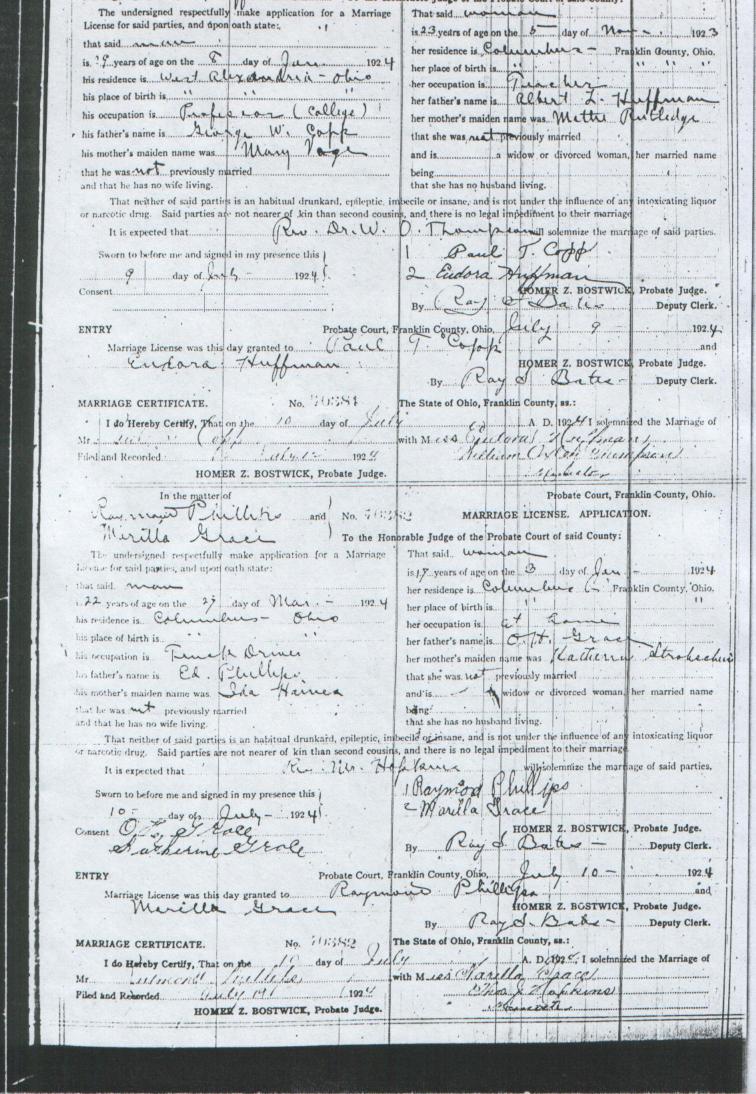 The undersigned respectfully make application for a Marriage
License for said parties, and upon oath state:
that said man
is 29 years of age on the 8 day of Jan. 1924
his residence is West Alexandria - Ohio
his place of birth is " "
his occupation is Professor (College)
his father's name is George W. Copp
his mother's maiden name was Mary Voge
that he was not previously married
and that he has no wife living.
That said woman
is 23 years of age on the 5 day of Nov - 1923
her residence is Columbus - Franklin County, Ohio.
her place of birth is " " " "
her occupation is Teacher
her father's name is Albert L. Huffman
her mother's maiden name was Mettie Rutledge
that she was not previously married
and is a widow or divorced woman, her married name
being
that she has no husband living.
That neither of said parties is an habitual drunkard, epileptic, imbecile or insane, and is not under the influence of any intoxicating liquor
or narcotic drug. Said parties are not nearer of kin than second cousins, and there is no legal impediment to their marriage
It is expected that Rev. Dr. W. O. Thompson will solemnize the marriage of said parties.
Sworn to before me and signed in my presence this
9 day of July 1924
Consent
1 Paul T. Copp
2 Eudora Huffman
HOMER Z. BOSTWICK, Probate Judge.
By Ray S Bates Deputy Clerk.
ENTRY Probate Court, Franklin County, Ohio, July 9 - 1924
Marriage License was this day granted to Paul T. Copp and
Eudora Huffman
HOMER Z. BOSTWICK, Probate Judge.
By Ray S. Bates - Deputy Clerk.
MARRIAGE CERTIFICATE. No. 70381 The State of Ohio, Franklin County, ss.:
I do Hereby Certify, That on the 10 day of July A. D. 1924 I solemnized the Marriage of
Mr Copp with Miss Eudora Huffman
Filed and Recorded July 1924 William Oxley Thompson
HOMER Z. BOSTWICK, Probate Judge. Minister
In the matter of
Raymond Phillips and
Mirilla Grace
No. 70382
Probate Court, Franklin County, Ohio.
MARRIAGE LICENSE. APPLICATION.
To the Honorable Judge of the Probate Court of said County:
The undersigned respectfully make application for a Marriage
License for said parties, and upon oath state:
that said man
is 22 years of age on the 27 day of Mar. - 1924
his residence is Columbus - Ohio
his place of birth is " "
his occupation is Truck Driver
his father's name is Ed. Phillips
his mother's maiden name was Ida Haines
that he was not previously married
and that he has no wife living.
That said woman
is 17 years of age on the 3 day of Jan. - 1924
her residence is Columbus Franklin County, Ohio.
her place of birth is " "
her occupation is at home
her father's name is O.H. Grace
her mother's maiden name was Katherine
that she was not previously married
and is a widow or divorced woman, her married name
being
that she has no husband living.
That neither of said parties is an habitual drunkard, epileptic, imbecile or insane, and is not under the influence of any intoxicating liquor
or narcotic drug. Said parties are not nearer of kin than second cousins, and there is no legal impediment to their marriage
It is expected that Rev. Mr. Hopkins will solemnize the marriage of said parties.
Sworn to before me and signed in my presence this
10 - day of July - 1924
Consent O. H. Grace
Katherine Grace
1 Raymond Phillips
2 Marilla Grace
HOMER Z. BOSTWICK, Probate Judge.
By Ray S Bates - Deputy Clerk.
ENTRY Probate Court, Franklin County, Ohio, July 10 - 1924
Marriage License was this day granted to Raymond Phillips and
Marilla Grace
HOMER Z. BOSTWICK, Probate Judge.
By Ray S. Bates - Deputy Clerk.
MARRIAGE CERTIFICATE. No. 70382 The State of Ohio, Franklin County, ss.:
I do Hereby Certify, That on the 10 day of July A. D. 1924, I solemnized the Marriage of
Mr Phillips with Miss Marilla Grace
Filed and Recorded July 1924 Hopkins
HOMER Z. BOSTWICK, Probate Judge.